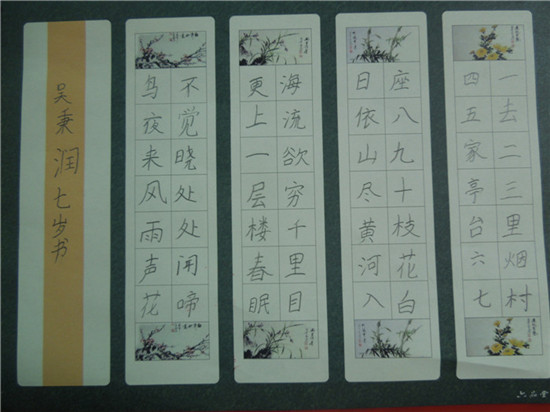 一去二三里烟村
四五家亭台六七
座八九十枝花白
日依山尽黄河入
海流欲穷千里目
更上一层楼春眠
不觉晓处处闻啼
鸟夜来风雨声花
吴秉润七岁书